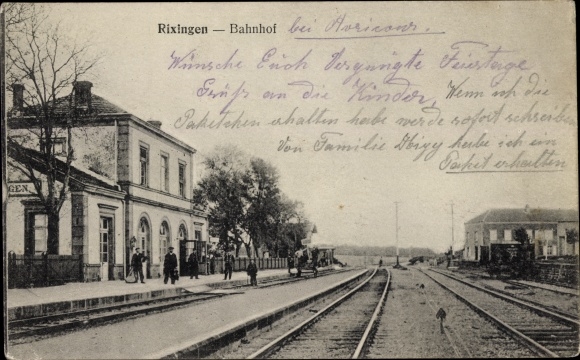 Rixingen — Bahnhof
bei Avricour.
Wünsche Euch Vergnügte Feiertage
Gruß an die Kinder, Wenn ich die
Paketchen erhalten habe werde sofort schreiben
Von Familie habe ich ein
Paket erhalten
GEN.